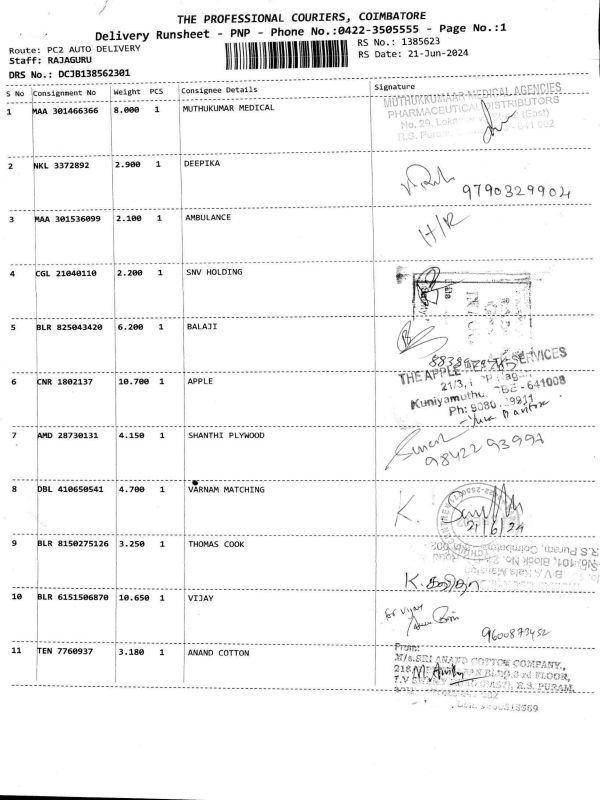 THE PROFESSIONAL COURIERS, COIMBATORE
Delivery Runsheet - PNP - Phone No.:0422-3505555 - Page No.:1
Route: PC2 AUTO DELIVERY
RS No.: 1385623
Staff: RAJAGURU
RS Date: 21-Jun-2024
DRS No.: DCJB138562301
S No Consignment No Weight PCS Consignee Details Signature
1 MAA 301466366 8.000 1 MUTHUKUMAR MEDICAL
MUTHUKKUMARR MEDICAL AGENCIES
PHARMACEUTICAL DISTRIBUTORS
No. 29, (East)
R.S. Puram,
2 NKL 3372892 2.900 1 DEEPIKA
9790329904
3 MAA 301536099 2.100 1 AMBULANCE
H/R
4 CGL 21040110 2.200 1 SNV HOLDING
5 BLR 825043420 6.200 1 BALAJI
6 CNR 1802137 10.700 1 APPLE
THE APPLE SERVICES
21/3,
Kuniyamuthu, CBE - 641008
Ph: 9080
7 AMD 28730131 4.150 1 SHANTHI PLYWOOD
Suresh
98422 93991
8 DBL 410650541 4.700 1 VARNAM MATCHING
K.
21/6/24
9 BLR 8150275126 3.250 1 THOMAS COOK
R.S Puram, Coimbatore
No:101, Block No.
K. கவிதா
10 BLR 6151506870 10.650 1 VIJAY
for Vijay
9600873452
11 TEN 7760937 3.180 1 ANAND COTTON
From:
M/s.SRI ANAND COTTON COMPANY,
218, BLDG, 3 rd FLOOR,
T.V R.S. PURAM,